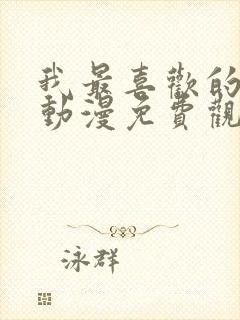 我最喜歡的
動漫免費觀
泳群